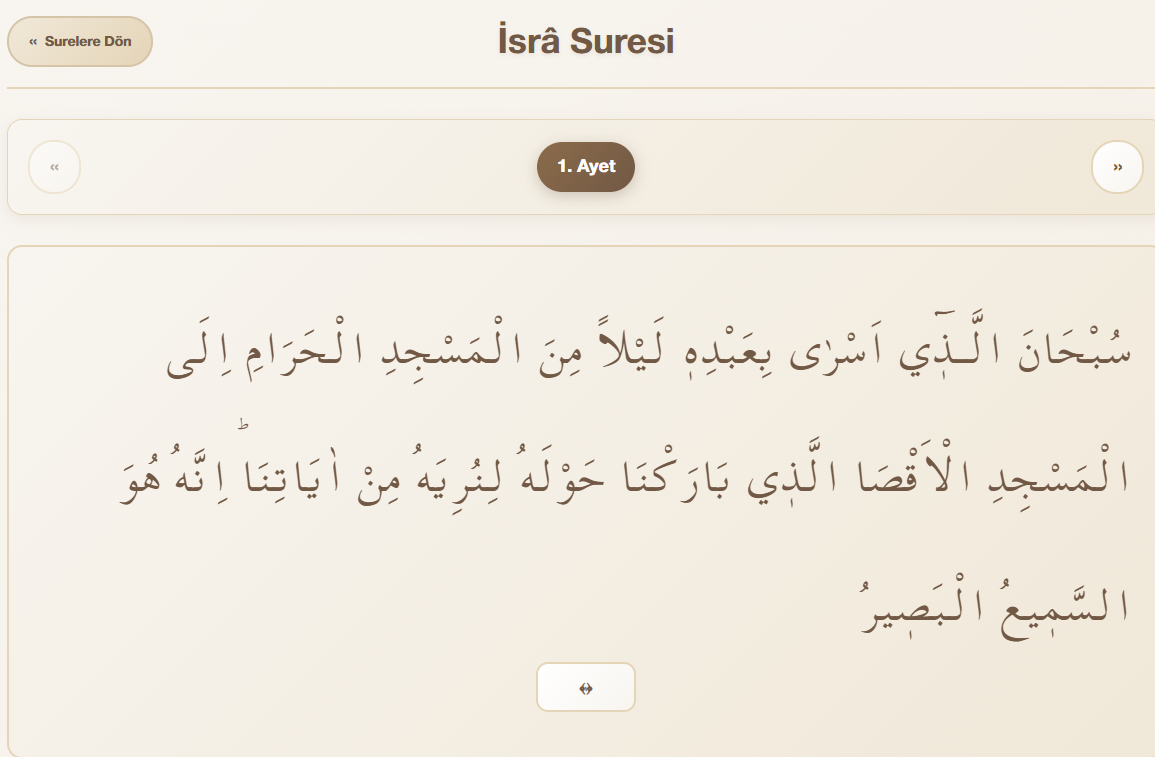 « Surelere Dön
İsrâ Suresi
«
1. Ayet
»
سُبْحَانَ الَّـذٖٓي اَسْرٰى بِعَبْدِهٖ لَيْلاً مِنَ الْمَسْجِدِ الْحَرَامِ اِلَى
الْمَسْجِدِ الْاَقْصَا الَّذٖي بَارَكْنَا حَوْلَهُ لِنُرِيَهُ مِنْ اٰيَاتِنَاؕ اِنَّهُ هُوَ
السَّمٖيعُ الْبَصٖيرُ